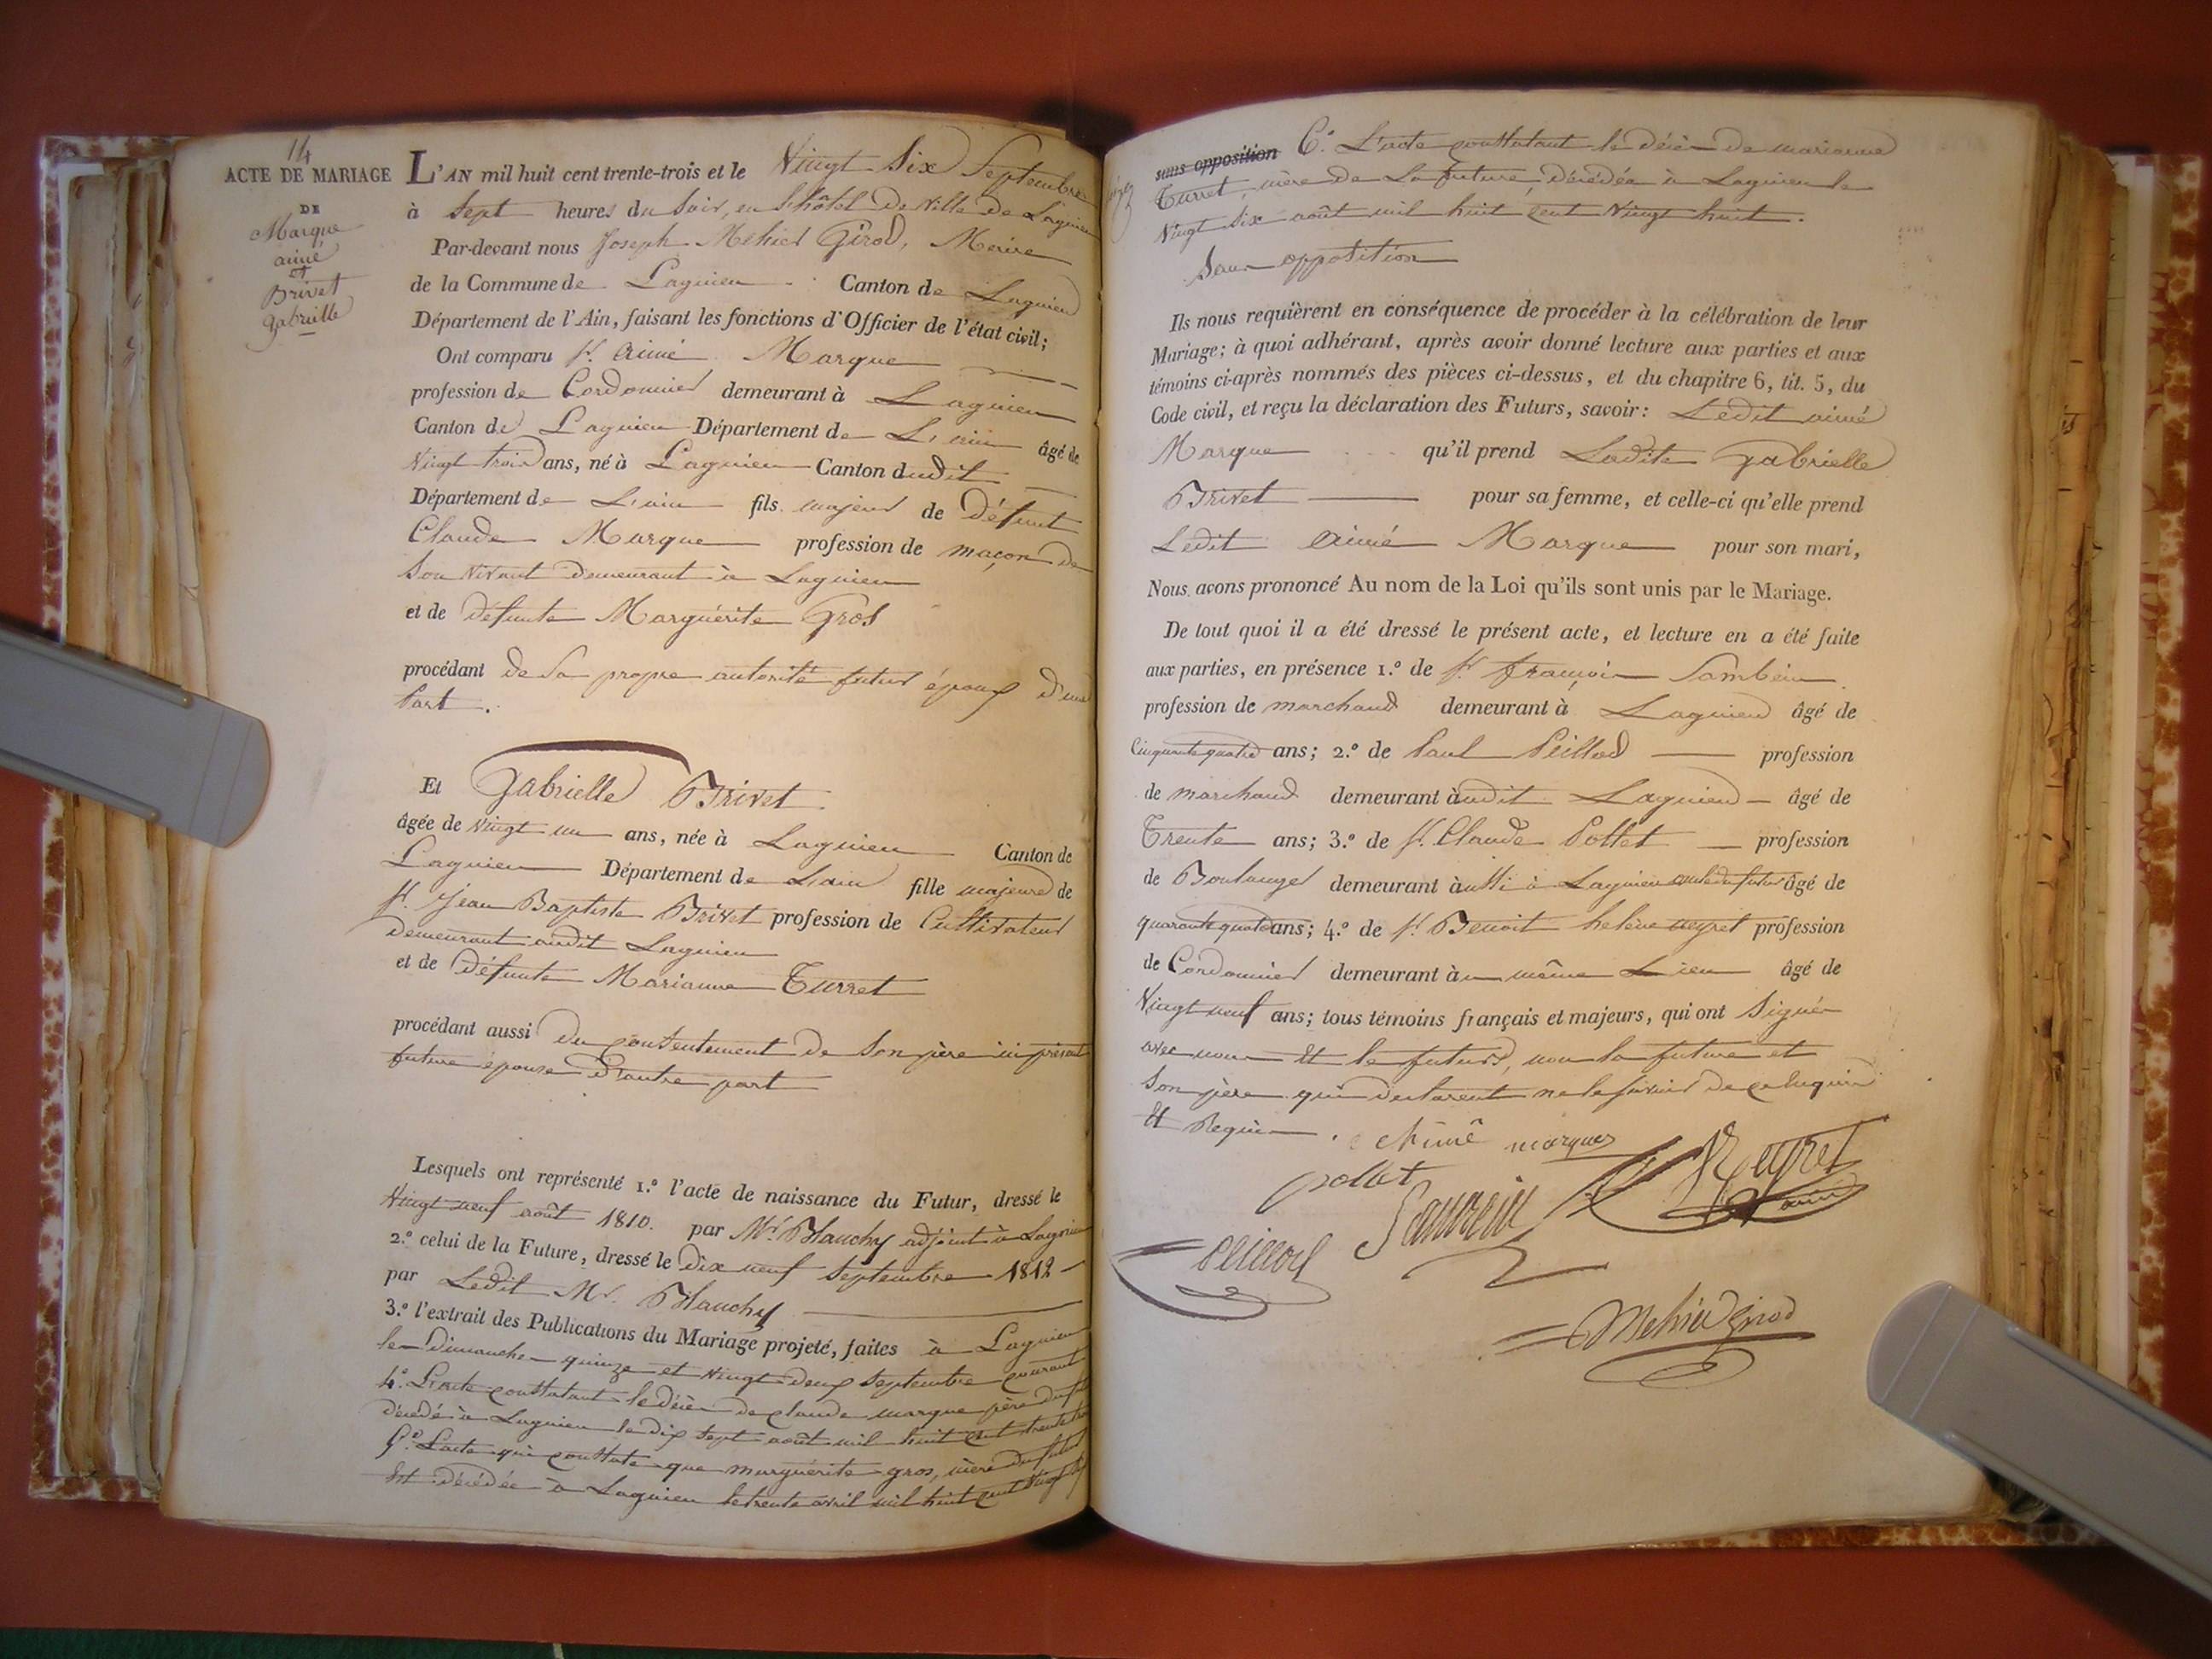 14
ACTE DE MARIAGE
DE
Marque
aimé
et
Brivet
gabrielle
L'AN mil huit cent trente-trois et le Vingt Six Septembre
à Sept heures du Soir, en L'hôtel De Ville de Lagnieu
Par-devant nous Joseph Méhier Girod, Maire
de la Commune de Lagnieu Canton de Lagnieu
Département de l'Ain, faisant les fonctions d'Officier de l'état civil;
Ont comparu Sr. Aimé Marque
profession de Cordonnier demeurant à Lagnieu
Canton de Lagnieu Département de L'ain âgé de
Vingt trois ans, né à Lagnieu Canton dudit
Département de L'ain fils majeur de Défunt
Claude Marque profession de maçon de
Son Vivant demeurant à Lagnieu
et de défunte Marguérite Gros
procédant de Sa propre autorité futur époux d'une
Part.
Et Gabrielle Brivet
âgée de Vingt un ans, née à Lagnieu Canton de
Lagnieu Département de L'ain fille majeure de
Sr. Jean Baptiste Brivet profession de Cultivateur
demeurant audit Lagnieu
et de Défunte Marianne Turret
procédant aussi du consentement de Son père ici présent
future épouse D'autre part
Lesquels ont représenté 1.º l'acte de naissance du Futur, dressé le
Vingt neuf août 1810. par Mr. Blanchy adjoint à Lagnieu
2.º celui de la Future, dressé le Dix neuf Septembre 1812
par Ledit Mr. Blanchy
3.º l'extrait des Publications du Mariage projeté, faites à Lagnieu
les Dimanches quinze et Vingt deux Septembre courant
4.º L'acte constatant le décès de claude marque père du futur
décédé à Lagnieu le dix Sept août mil huit cent trente
5.º L'acte qui constate que marguérite gros, mère du futur
Est décédée à Lagnieu le trente avril mil huit cent Vingt
sans opposition 6.º L'acte constatant le décès de marianne
Turret, mère de La future, décédée à Lagnieu le
Vingt Six août mil huit cent Vingt huit.
Sans opposition
Ils nous requièrent en conséquence de procéder à la célébration de leur
Mariage; à quoi adhérant, après avoir donné lecture aux parties et aux
témoins ci-après nommés des pièces ci-dessus, et du chapitre 6, tit. 5, du
Code civil, et reçu la déclaration des Futurs, savoir: Ledit aimé
Marque qu'il prend Ladite gabrielle
Brivet pour sa femme, et celle-ci qu'elle prend
Ledit Aimé Marque pour son mari,
Nous avons prononcé Au nom de la Loi qu'ils sont unis par le Mariage.
De tout quoi il a été dressé le présent acte, et lecture en a été faite
aux parties, en présence 1.º de Sr. françois
profession de marchand demeurant à Lagnieu âgé de
Cinquante quatre ans; 2.º de Paul Peillod profession
de marchand demeurant audit Lagnieu âgé de
Trente ans; 3.º de Sr. Claude Pollet profession
de Boulanger demeurant aussi à Lagnieu oncle du futur âgé de
quarante quatre ans; 4.º de Sr. Benoit helène meyret profession
de Cordonnier demeurant au même Lieu âgé de
Vingt neuf ans; tous témoins français et majeurs, qui ont Signés
avec nous Et le futur, non la future et
Son père qui declarent ne le savoir de ce Enquis
Et Requis. Aimé marque
pollet
Peillod
Mehier Girod